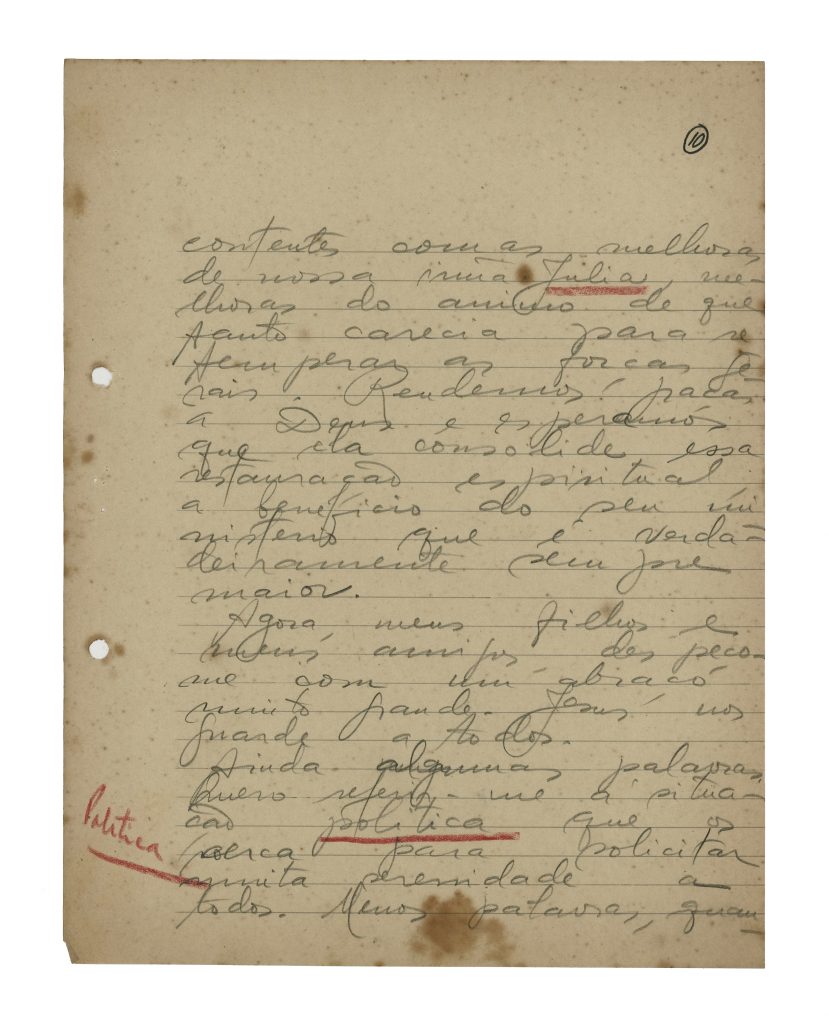 10
contentes com as melhoras
de nossa irmã Júlia, me-
lhoras do animo de que
tanto carecia para re
temperar as forcas ge-
rais. Rendemos graças
a Deus e esperamos
que ela consolide essa
restauracão espiritual
a benefício do seu mi
nisterio que é verda-
deiramente sempre
maior.
Agora meus filhos e
meus amigos, despeço-
me com um abraço
muito grande. Jesus nos
guarde a todos.
Ainda algumas palavras
Quero referir-me á situa-
cão política que os
cerca para solicitar
Politica
muita serenidade a
todos. Menos palavras, quan-